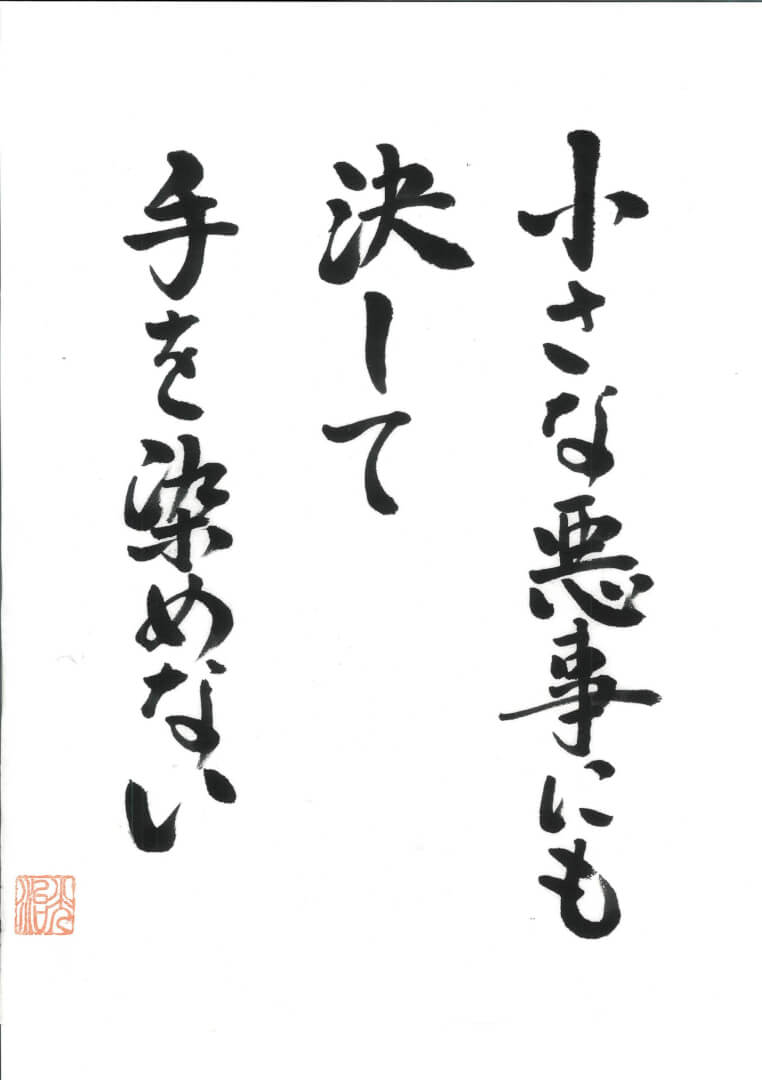 小さな悪事にも
決して
手を染めない